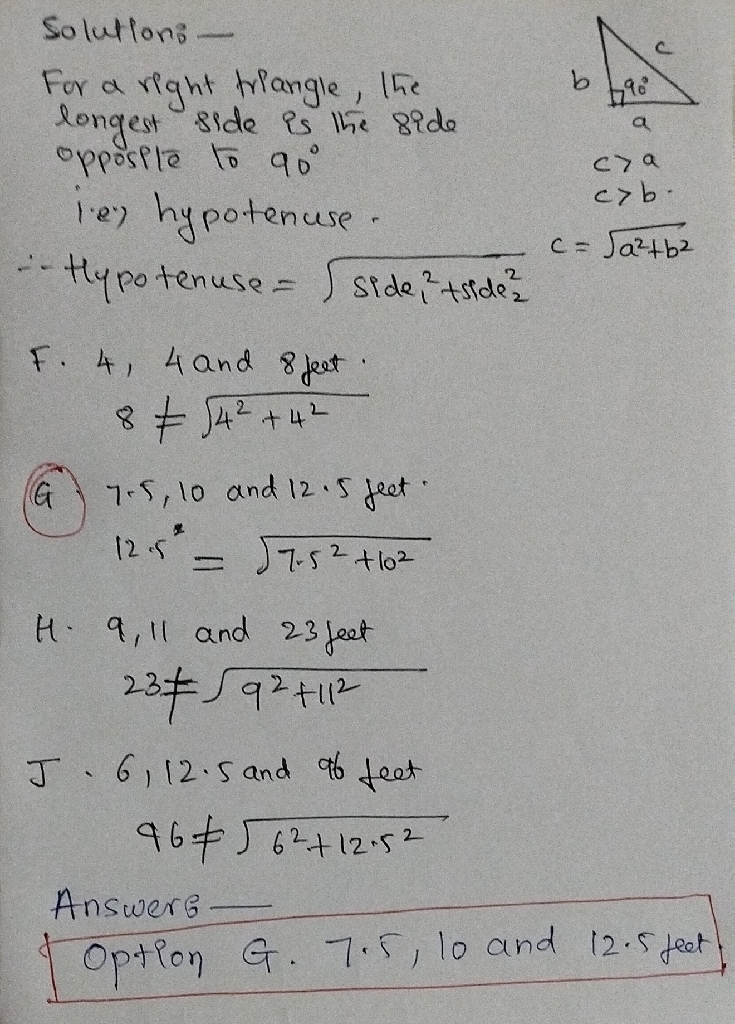 Solution:—
For a right triangle, the
longest side is the side
opposite to 90°
i.e., hypotenuse.
∴ Hypotenuse = √(side₁² + side₂²)
c
b
90°
a
c>a
c>b.
c = √(a²+b²)
F. 4, 4 and 8 feet.
8 ≠ √(4² + 4²)
G. 7.5, 10 and 12.5 feet.
12.5 = √(7.5² + 10²)
H. 9, 11 and 23 feet
23 ≠ √(9² + 11²)
J. 6, 12.5 and 96 feet
96 ≠ √(6² + 12.5²)
Answer:—
Option G. 7.5, 10 and 12.5 feet